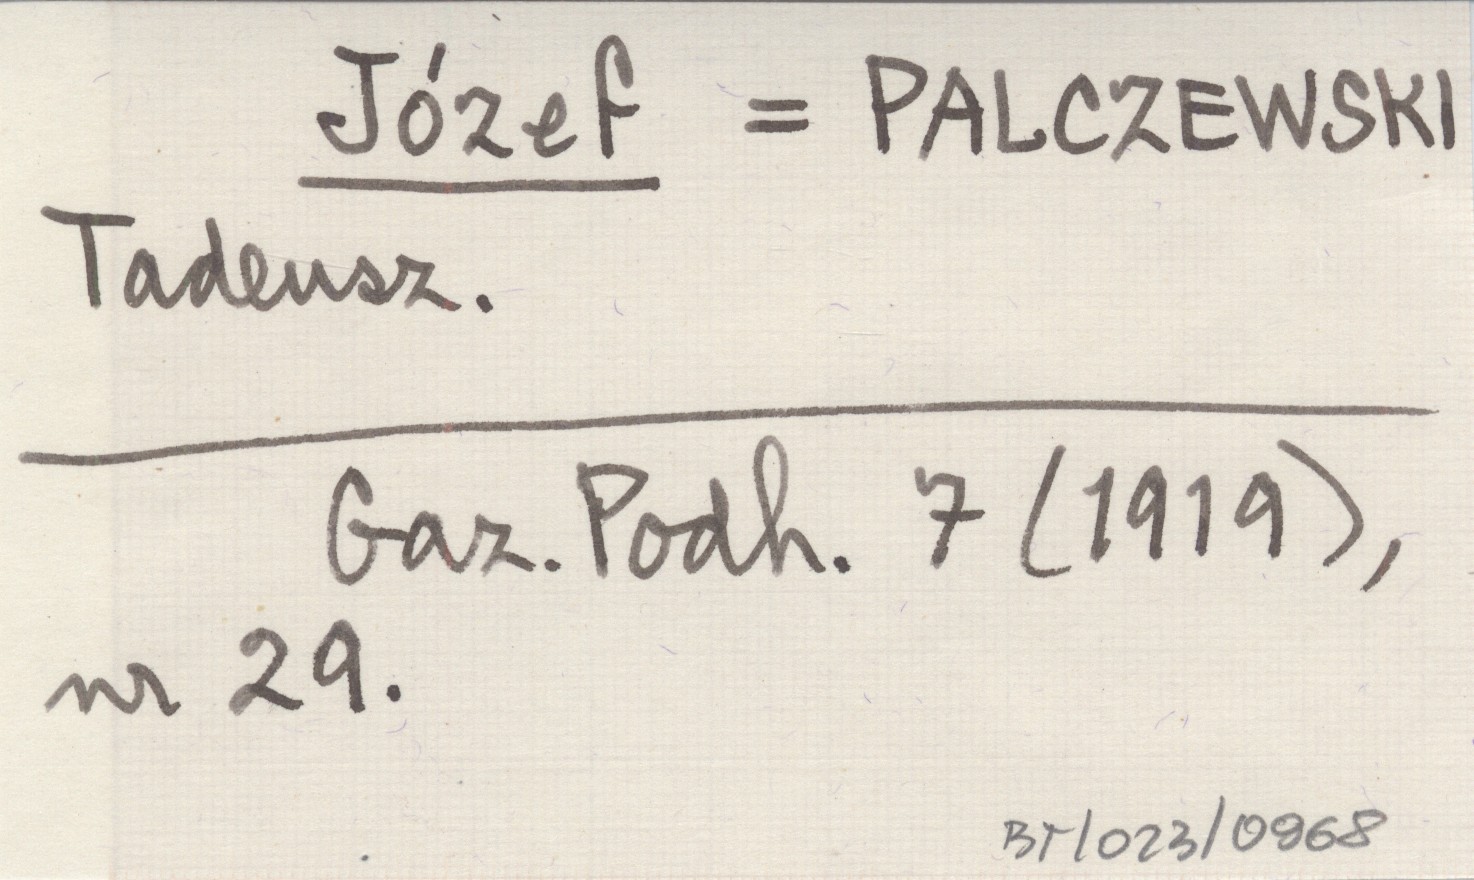 Józef = PALCZEWSKI
Tadeusz.
Gaz. Podh. 7 (1919),
nr 29.
BT/023/0968